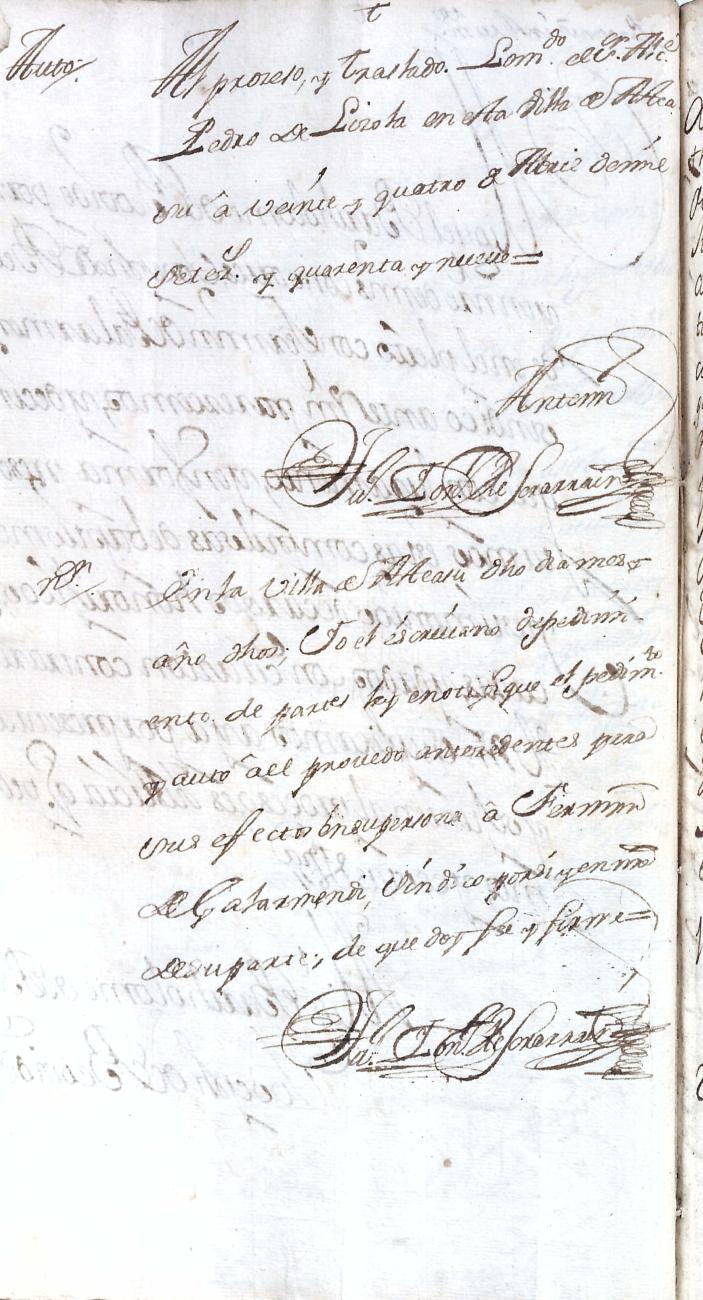 t
Auto.
Al proceso, y traslado. Lo m.do el Sr. Alc.e
Pedro de Lizola en esta Villa de Atea
su â veinte y quatro de Abril de mil
setez.s y quarenta y nueve =
Antemi
Ju.o Ton.o de Sorarrain
n.on
En la Villa de Ateasu dho dia mes y
año dhos; Yo el escrivano de pedim
ento de partes ley e notifique el pedim.to
y auto â el proveido antezedentes para
sus efectos en su persona â Fermin
de Galarmendi, Sindico por si y en nre
de su parte, de que doy fee y firme =
Ju.o Ton.o de Sorarrain